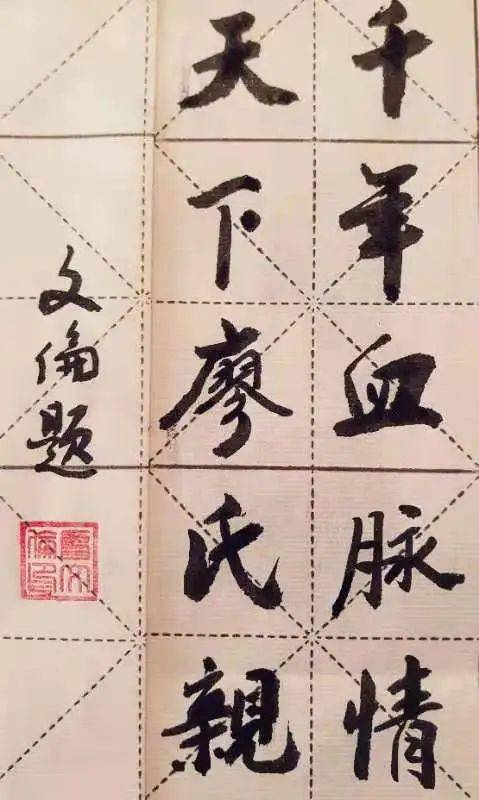 千年血脉情
天下廖氏親
文倫题